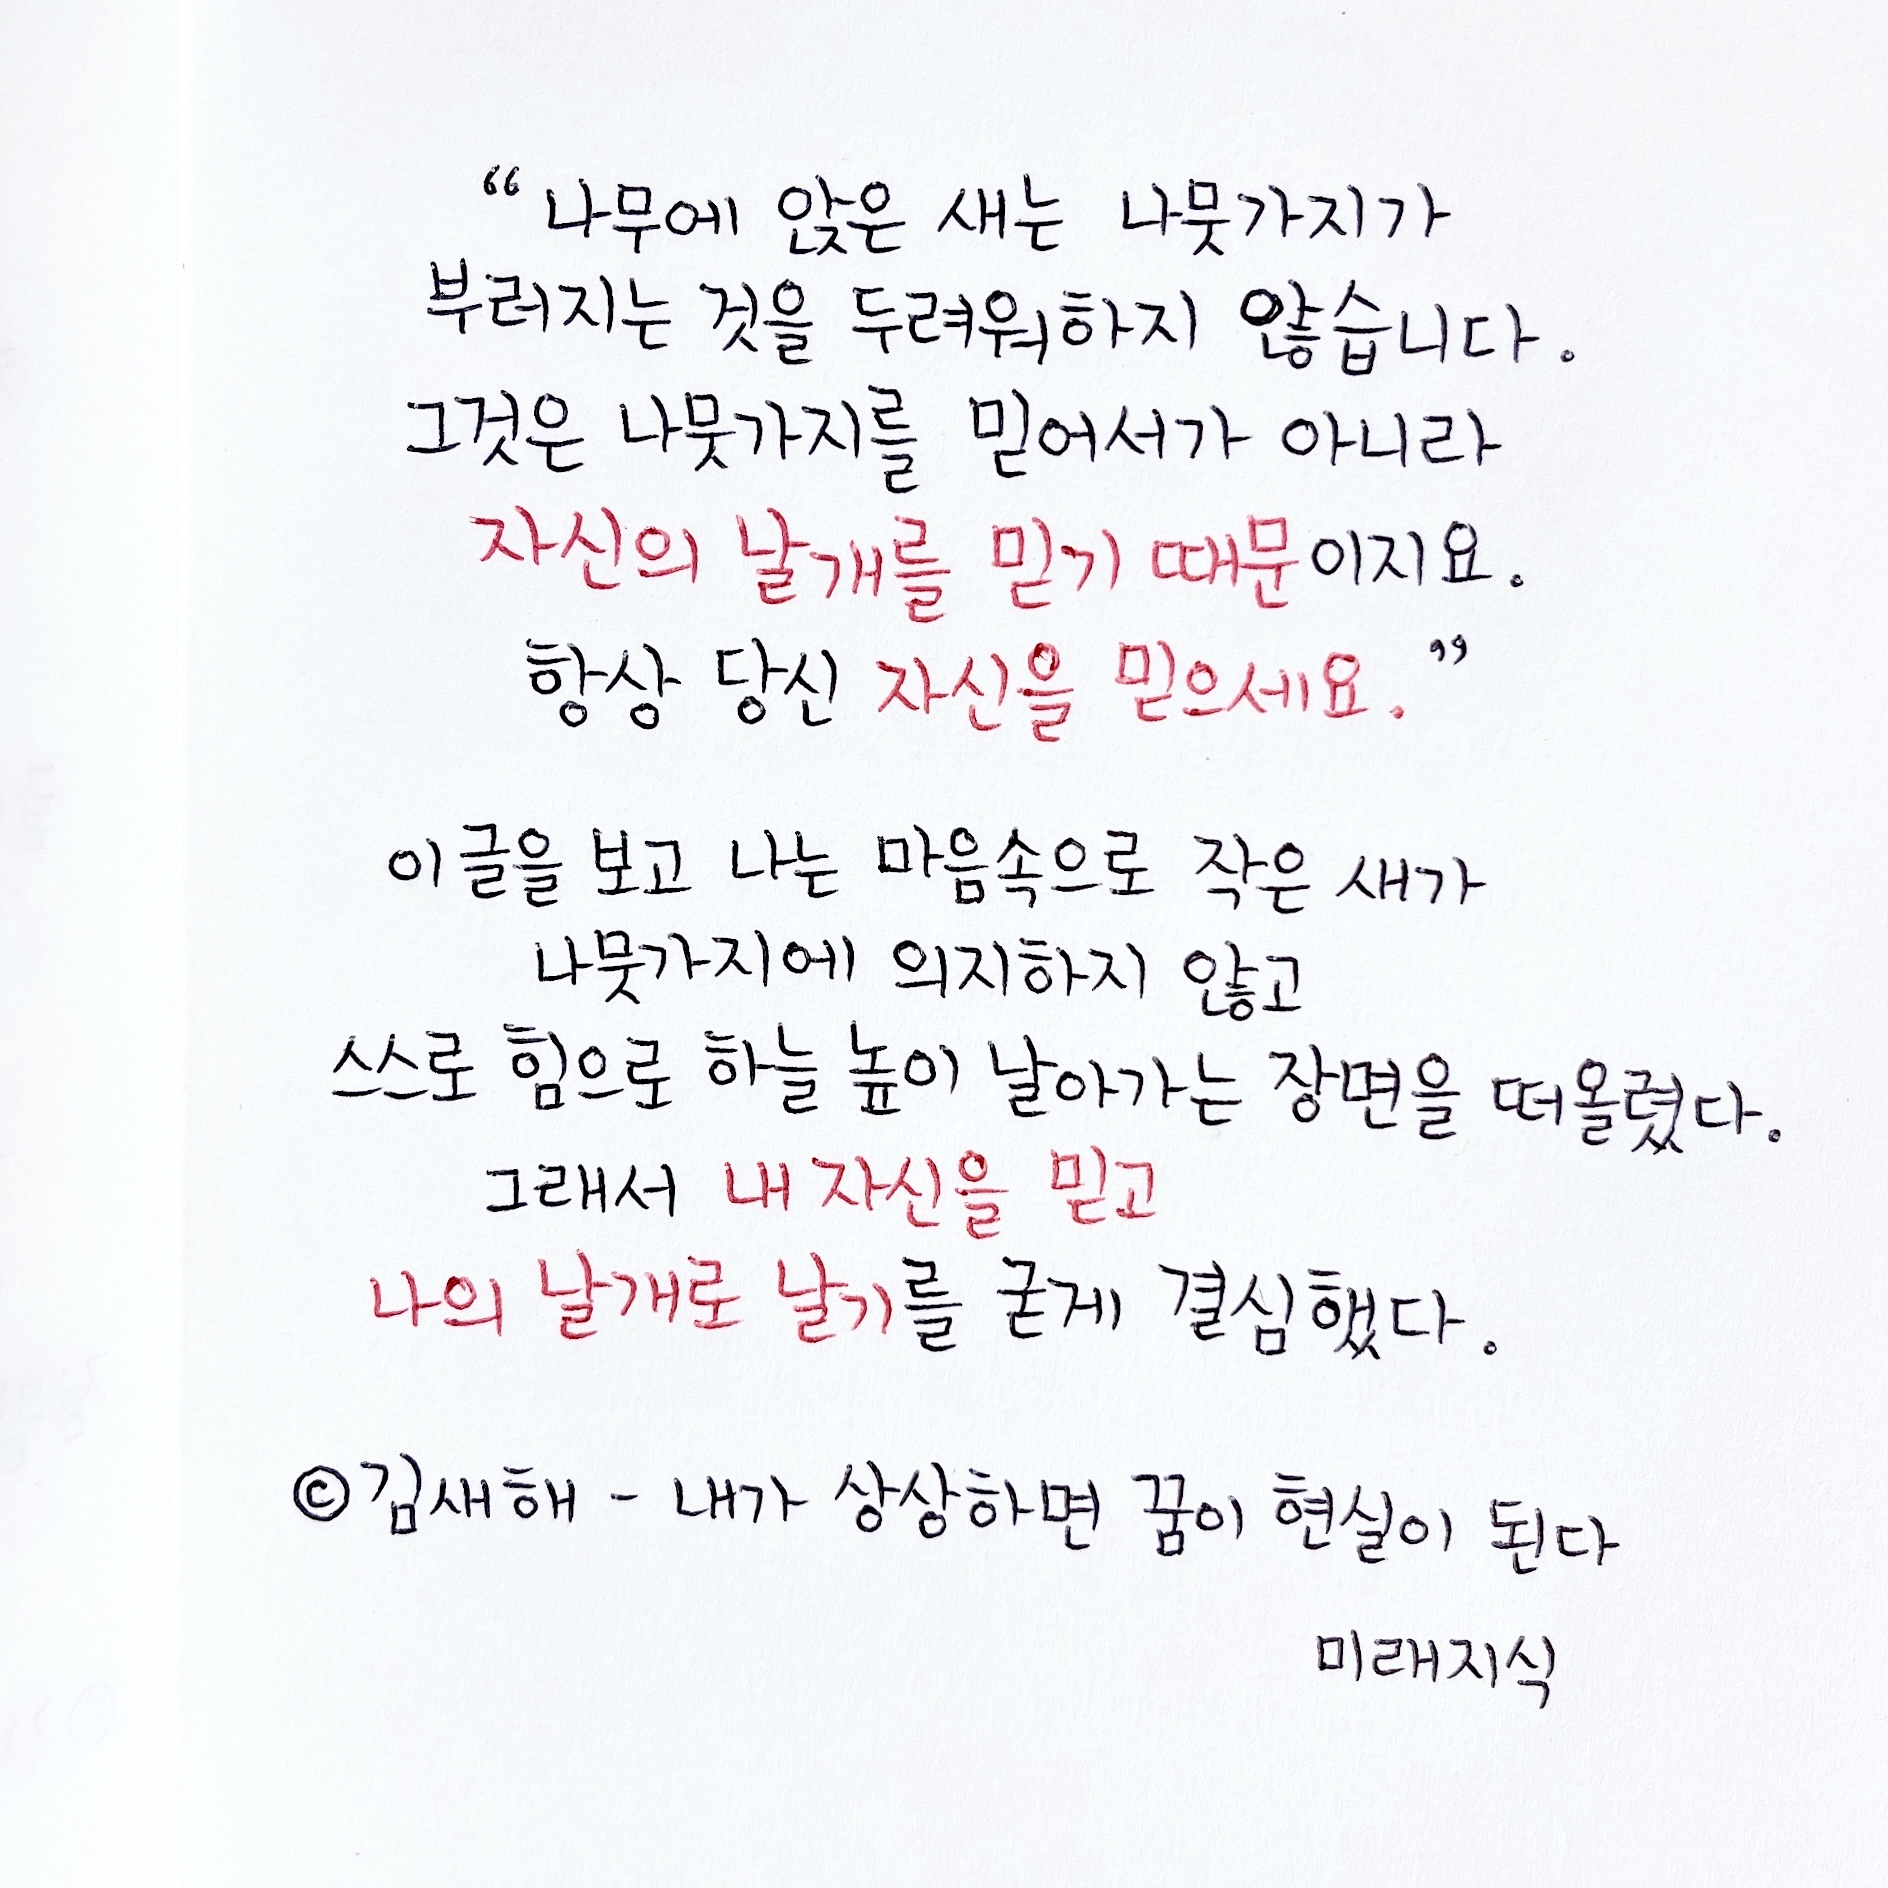 “나무에 앉은 새는 나뭇가지가
부러지는 것을 두려워하지 않습니다.
그것은 나뭇가지를 믿어서가 아니라
자신의 날개를 믿기 때문이지요.
항상 당신 자신을 믿으세요.”
이 글을 보고 나는 마음속으로 작은 새가
나뭇가지에 의지하지 않고
스스로 힘으로 하늘 높이 날아가는 장면을 떠올렸다.
그래서 내 자신을 믿고
나의 날개로 날기를 굳게 결심했다.
©김새해 - 내가 상상하면 꿈이 현실이 된다
미래지식